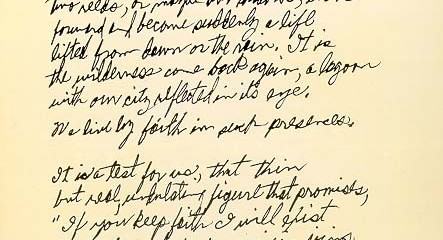 two reeds, or maybe
forward and become suddenly a life
lifted from dawn or the rain. It is
the wilderness come back again, a lagoon
with our city reflected in its eye.
We live by faith in such presences.
It is a test for us, that thin
but real, undulating figure that promises,
"If you keep faith I will exist